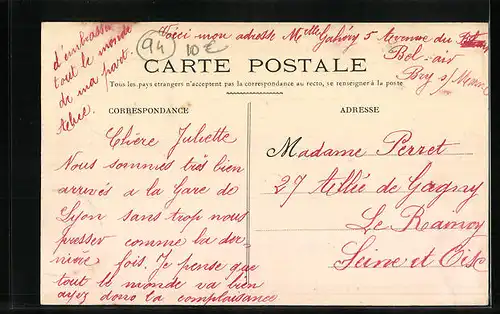 Voici mon adresse Melle Gahéry 5 Avenue du
Bel-air
Bry s/Marne
d'embrasser
tout le monde
de ma part.
94
10€
CARTE POSTALE
Tous les pays étrangers n'acceptent pas la correspondance au recto, se renseigner à la poste
CORRESPONDANCE
ADRESSE
Chère Juliette
Nous sommes très bien
arrivés a la Gare de
Lyon sans trop nous
presser comme la der-
nière fois. Je pense que
tout le monde va bien
ayez donc la complaisance
Madame Perret
27 Allée de Gagny
Le Raincy
Seine et Oise